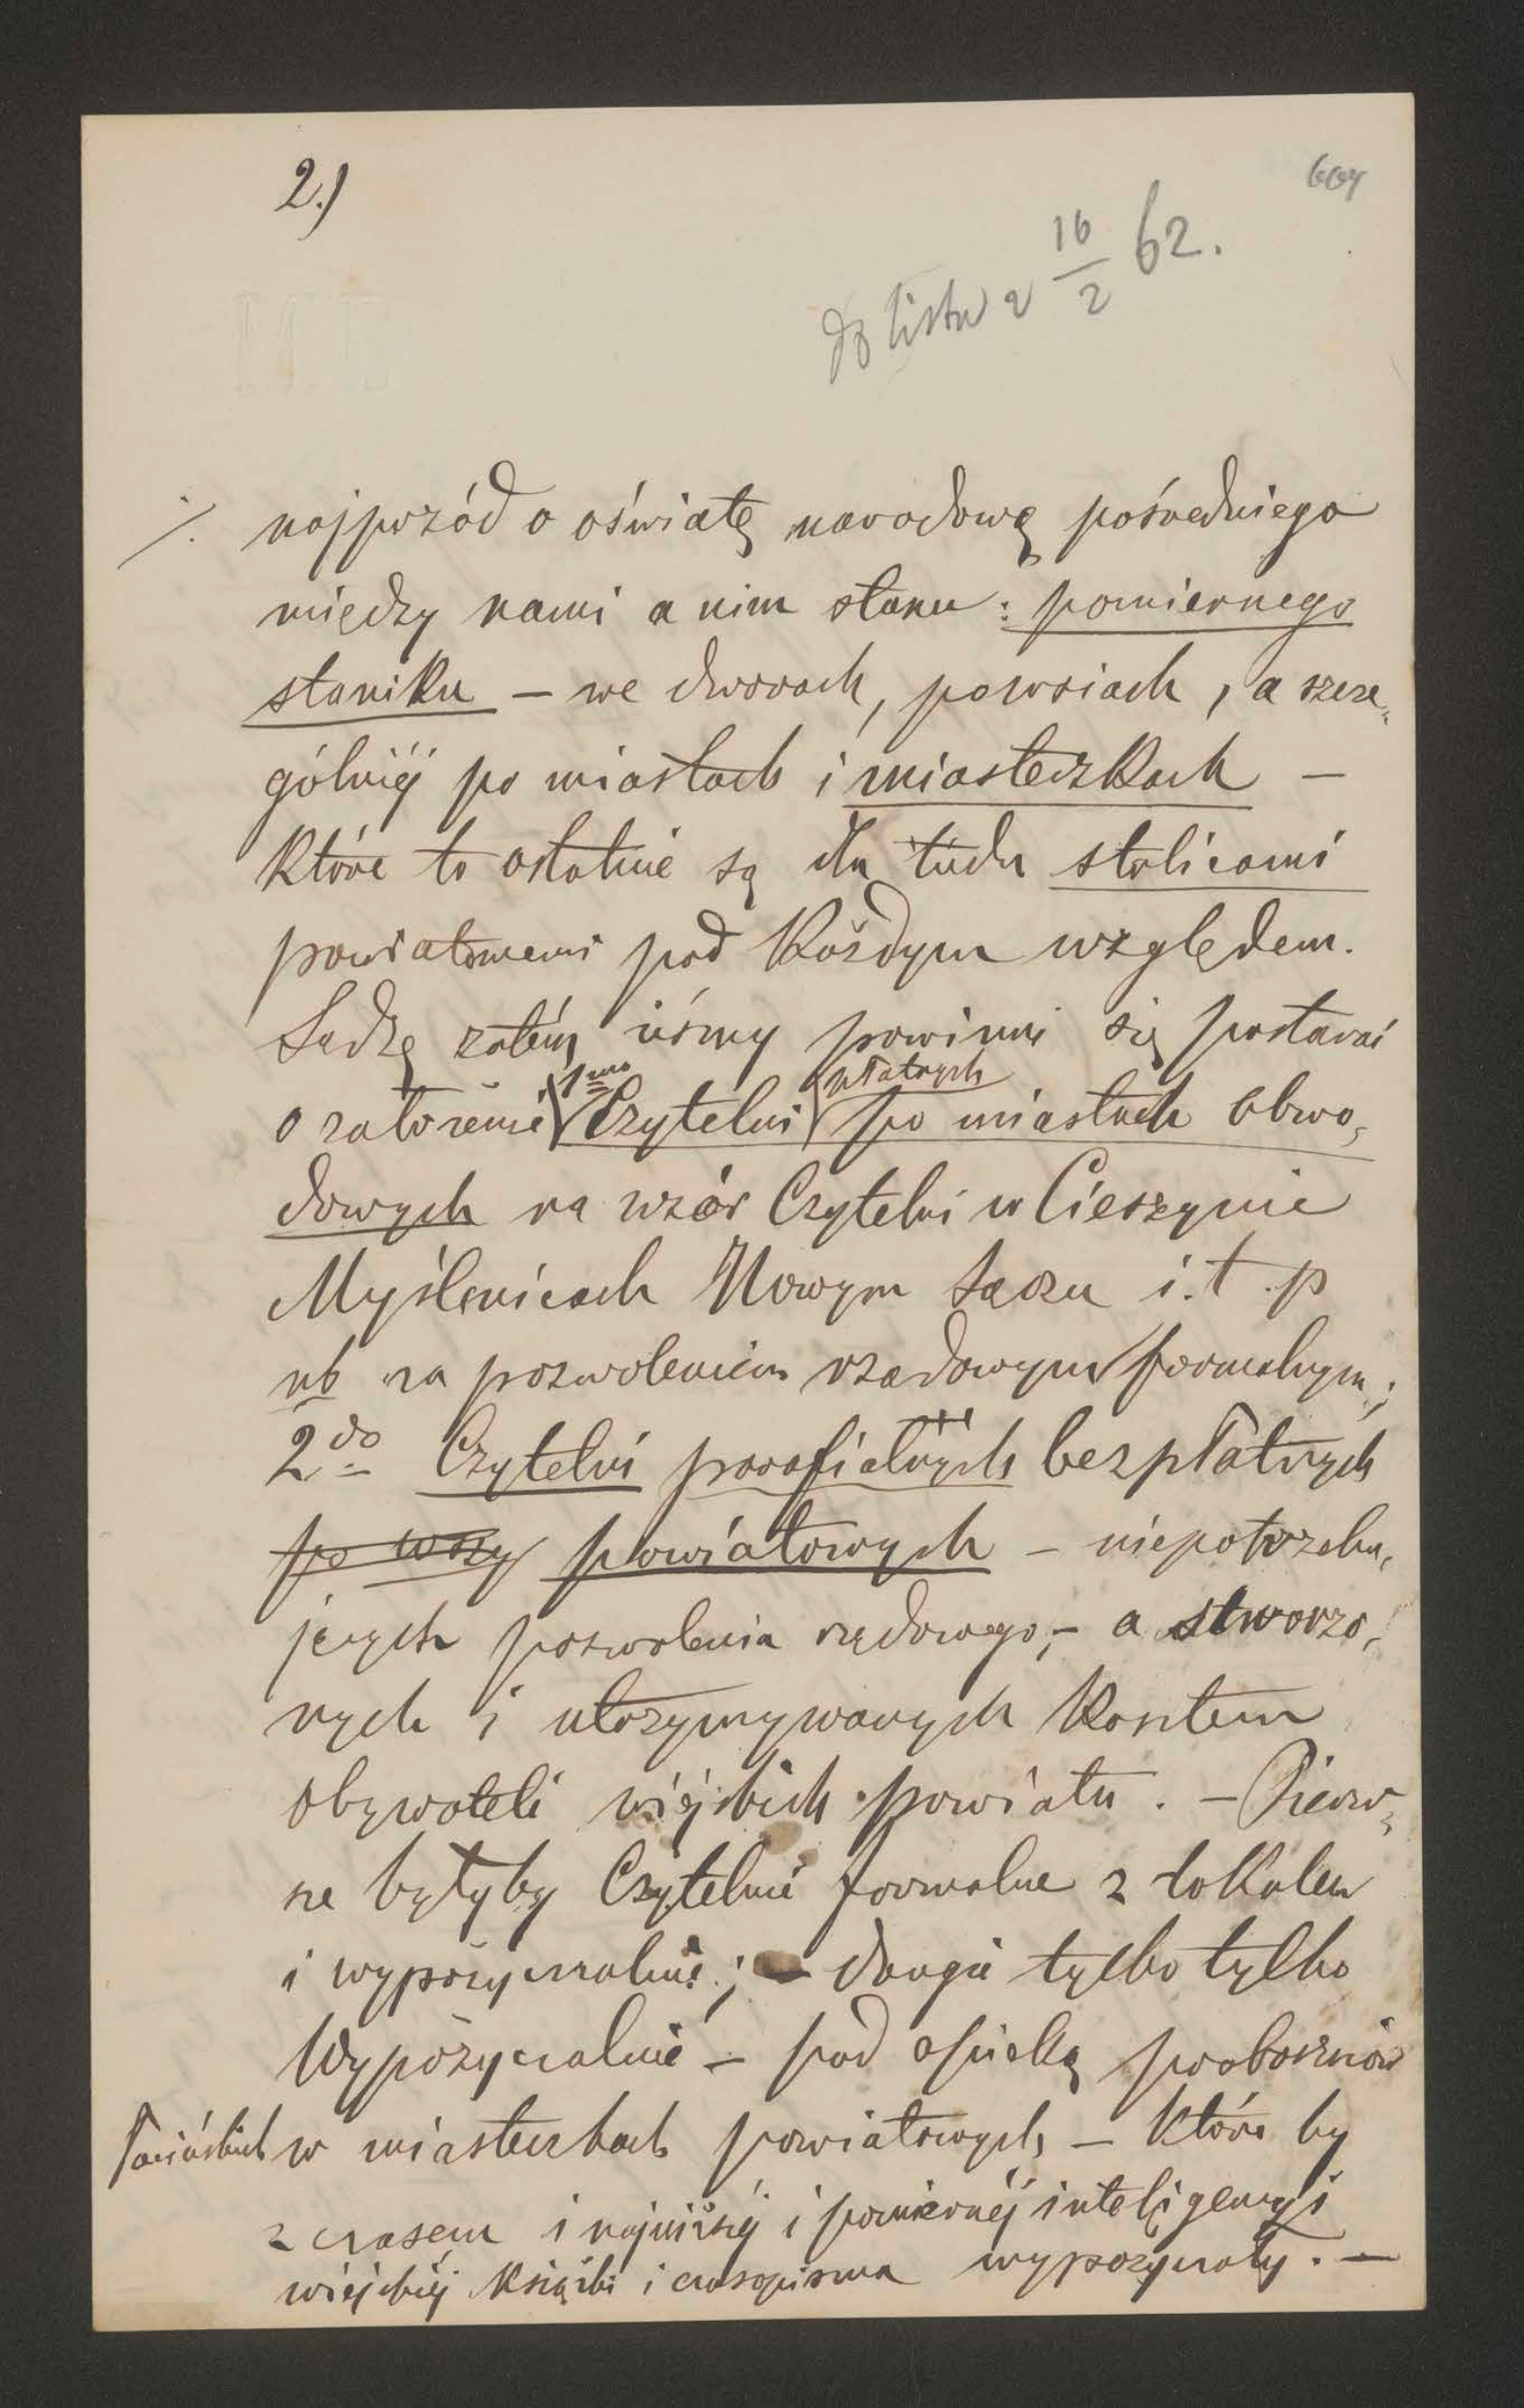 2.)
664
do listu z 16/2 62.
./. najprzód o oświatę narodową pośredniego
między nami a nim stanu: pomiernego
staniku – we dworach, powsiach, a szcze„
gólniéj po miastach i miasteczkach –
które to ostatnie są dla ludu stolicami
powiatowemi pod każdym względem.
Sądzę zatém iżśmy powinni się postarać
o założenie 1mo Czytelni płatnych po miastach obwo„
dowych na wzór Czytelni w Cieszynie
Myślenicach Nowym Sączu i. t. p
nb za pozwoleniem rządowym formalnym;
2do Czytelni parafialnych bezpłatnych
po wszy powiatowych – niepotrzebu„
jących pozwolenia rządowego, – a stworzo„
nych i utrzymywanych kosztem
obywateli wiejskich powiatu. – Pierw„
sze byłyby Czytelnie formalne z lokalem
i wypożyczalnie; – drugie tylko tylko
Wypożyczalnie – pod opieką proboszczów
łacińskich w miasteczkach powiatowych, – które by
z czasem i najniższéj i pomiernéj inteligencyi
wiejskiéj książki i czasopisma wypożyczały. –